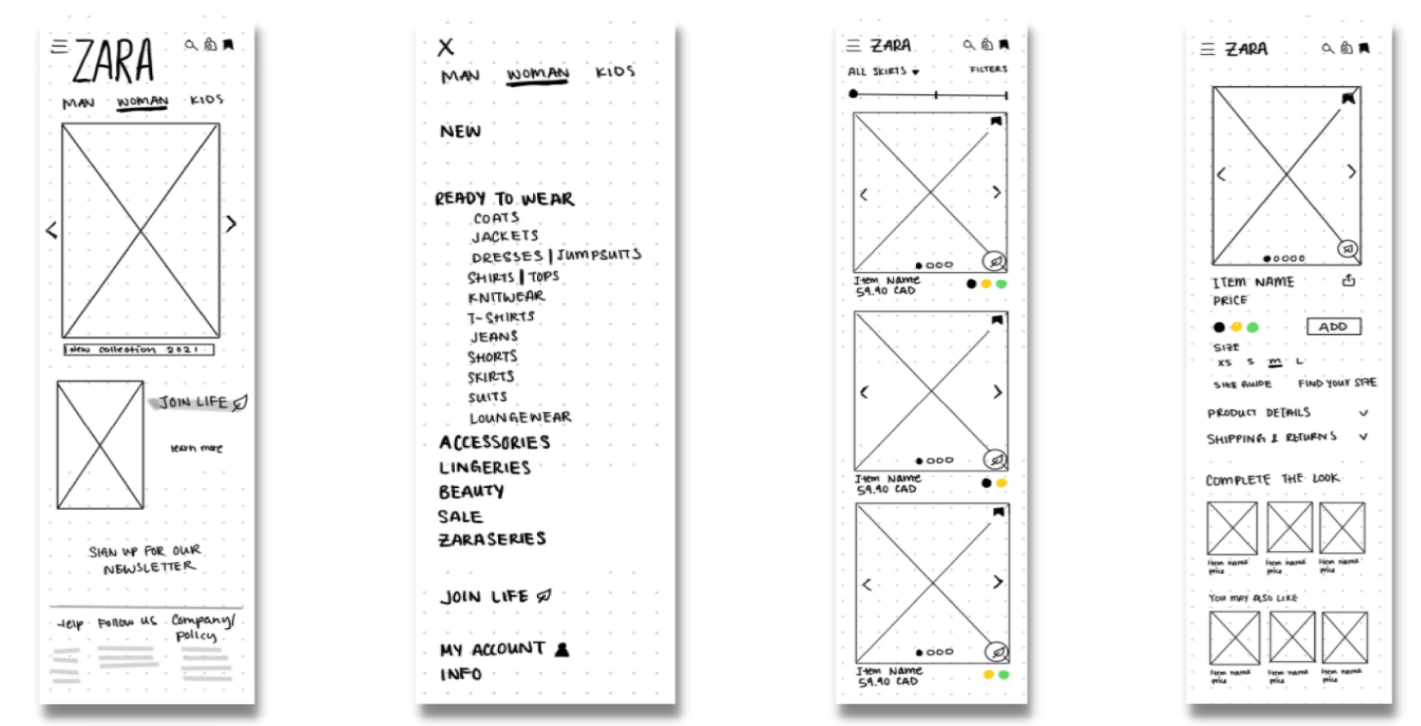 ZARA
MAN WOMAN KIDS
New collection 2021
JOIN LIFE
learn more
SIGN UP FOR OUR
NEWSLETTER
Help Follow us Company/
Policy
X
MAN WOMAN KIDS
NEW
READY TO WEAR
COATS
JACKETS
DRESSES | JUMPSUITS
SHIRTS | TOPS
KNITWEAR
T-SHIRTS
JEANS
SHORTS
SKIRTS
SUITS
LOUNGEWEAR
ACCESSORIES
LINGERIES
BEAUTY
SALE
ZARA SERIES
JOIN LIFE
MY ACCOUNT
INFO
ZARA
ALL SKIRTS FILTERS
Item Name
59.90 CAD
Item Name
59.90 CAD
Item Name
59.90 CAD
ZARA
ITEM NAME
PRICE
ADD
SIZE
XS S M L
SIZE GUIDE FIND YOUR SIZE
PRODUCT DETAILS
SHIPPING & RETURNS
COMPLETE THE LOOK
Item name Item name Item name
price price price
YOU MAY ALSO LIKE
Item name Item name Item name
price price price